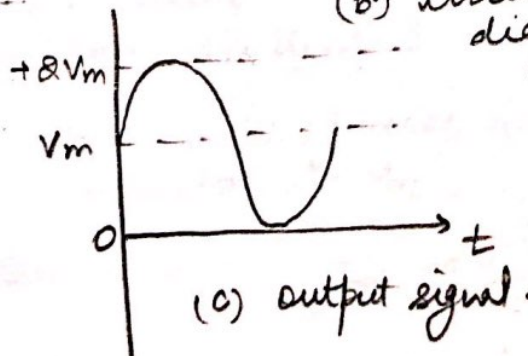 (b)
+2Vm
Vm
0
t
(c) output signal.